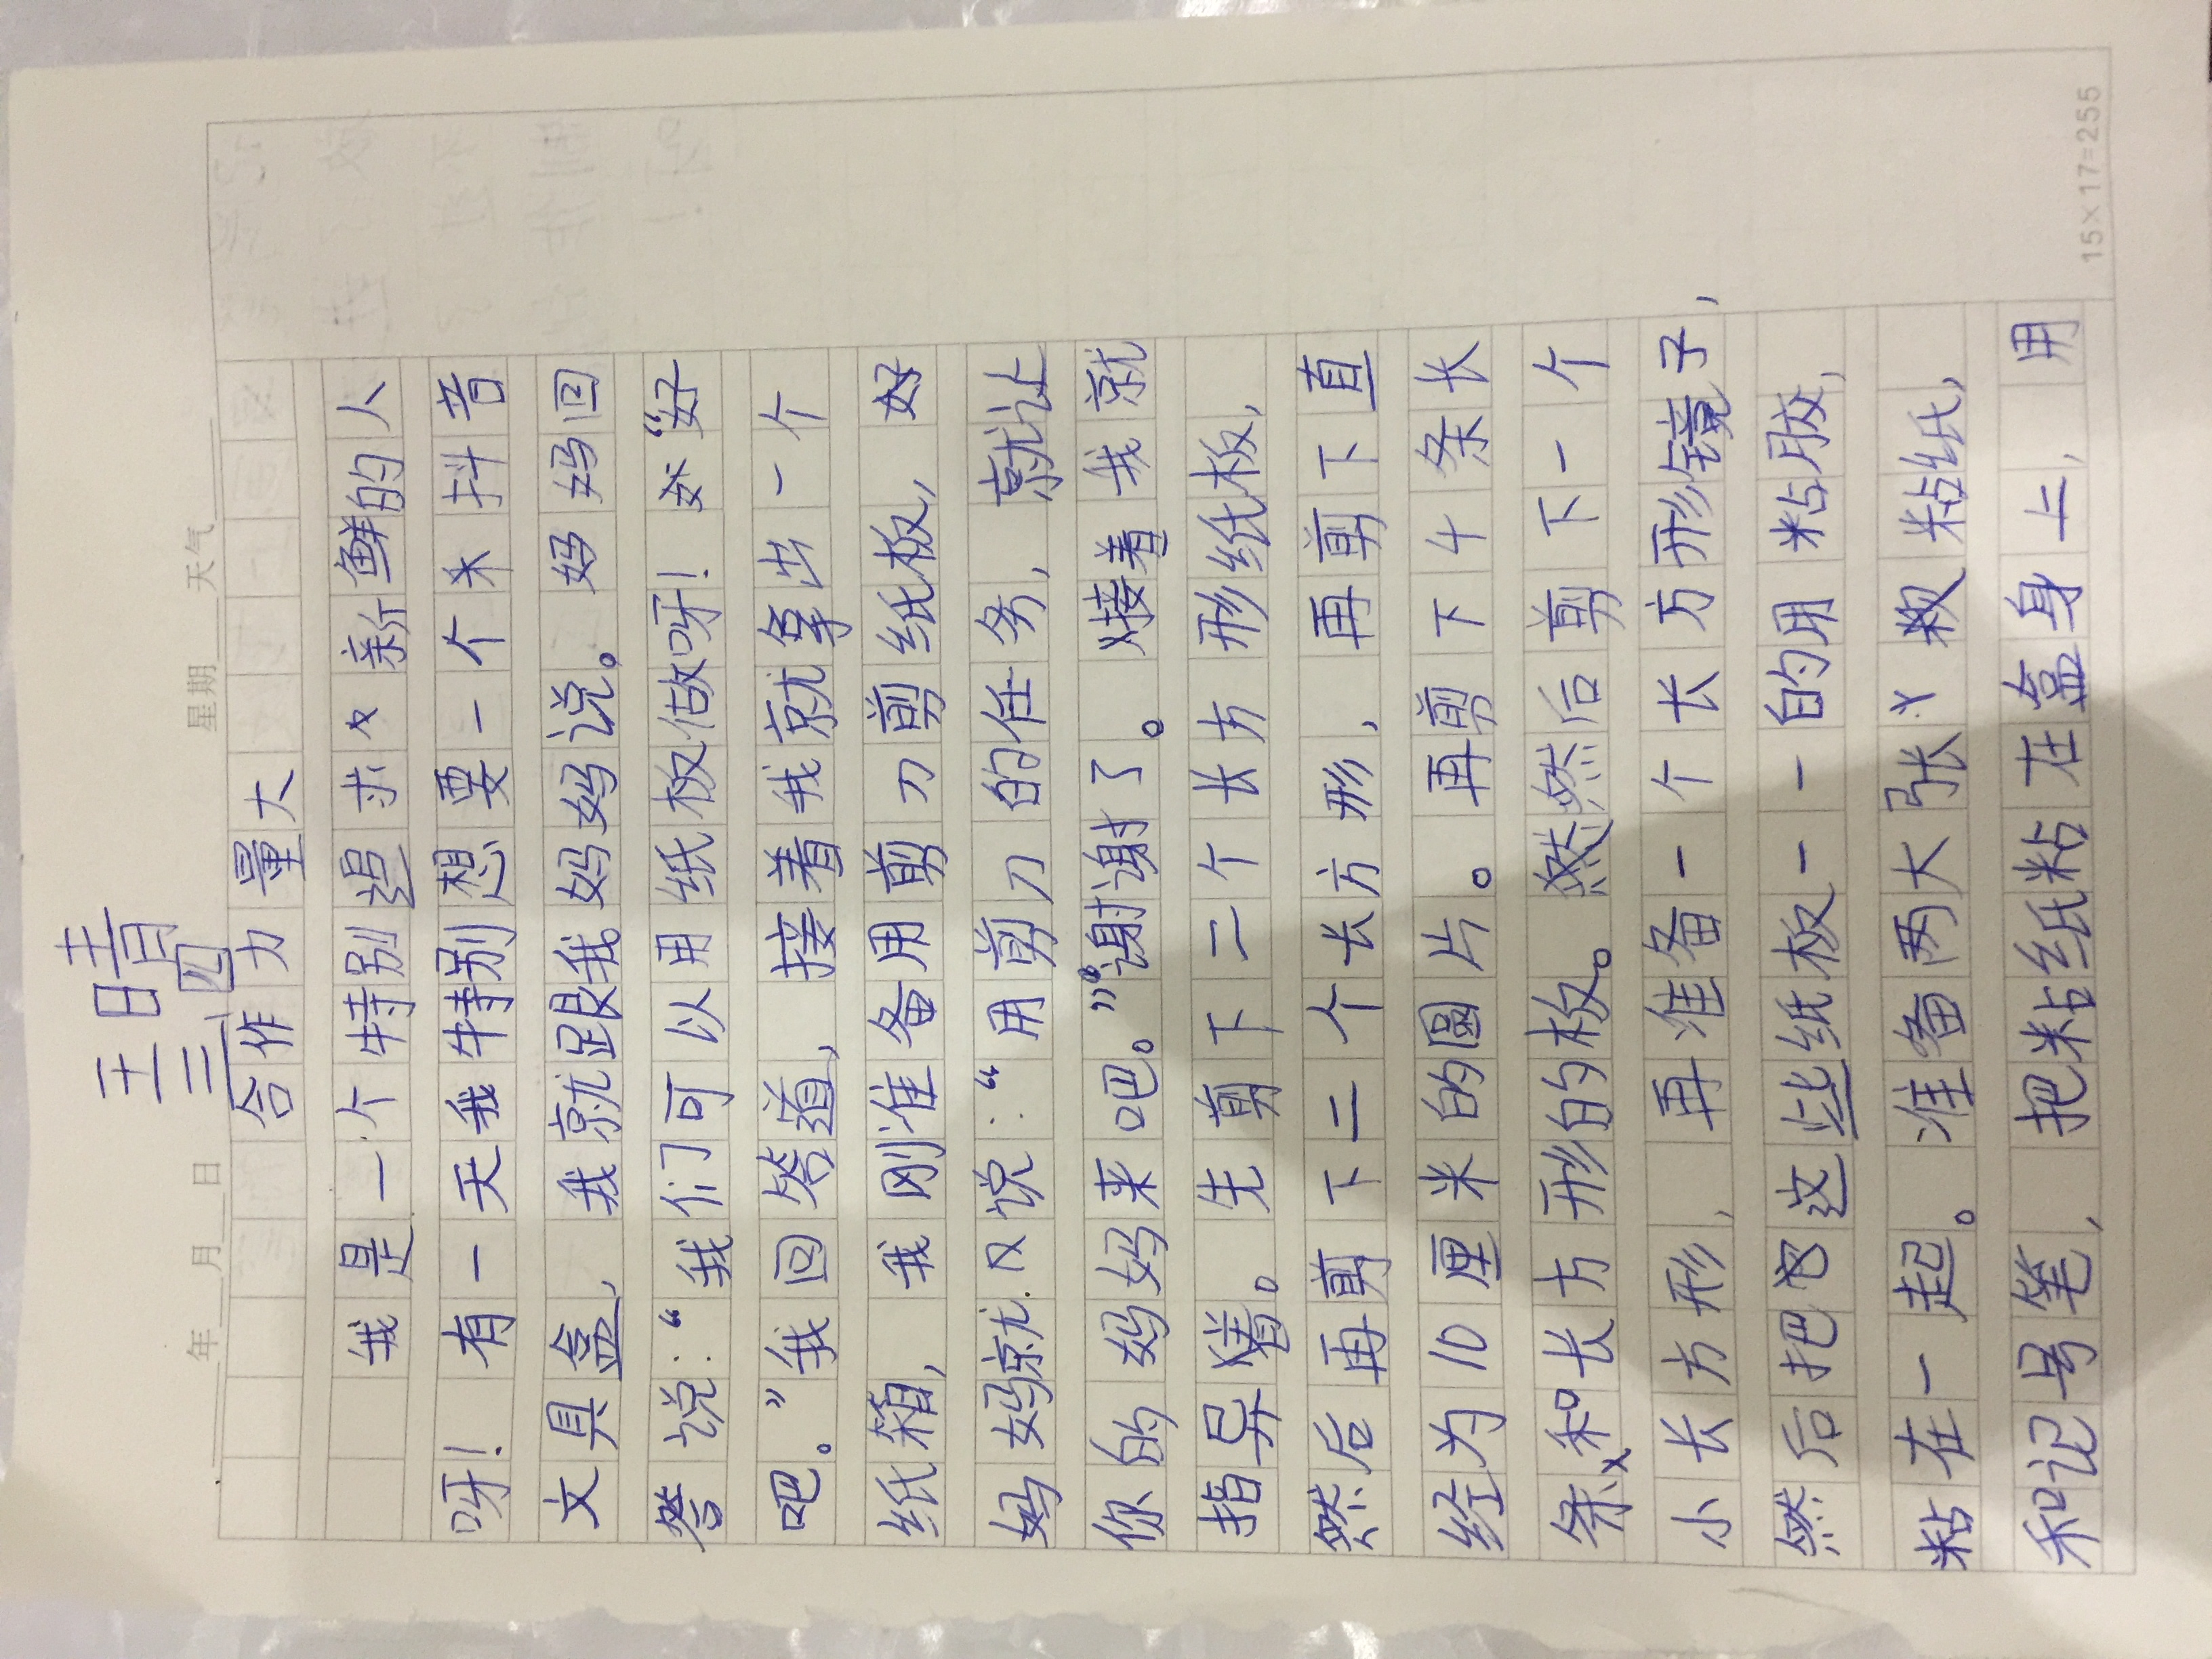 王晴
三四
年 月 日 星期 天气
合作力量大
我是一个特别追求新鲜的人
呀！有一天我特别想要一个抖音
文具盒，我就跟我妈妈说。妈妈回
答说：“我们可以用纸板做呀！”“好
吧。”我回答道，接着我就拿出一个
纸箱，我刚准备用剪刀剪纸板，好
妈妈就又说：“用剪刀的任务，就让
你的妈妈来吧。”“谢谢了。接着我就
指导着。先剪下二个长方形纸板，
然后再剪下二个长方形，再剪下直
经为10厘米的圆片。再剪下4条长
条和长方形的板。然后剪下一个
小长方形，再准备一个长方形镜子，
然后把这些纸板一一的用粘胶，
粘在一起。准备两大张粘纸，
和记号笔，把粘纸粘在盒身上，用
15×17=255